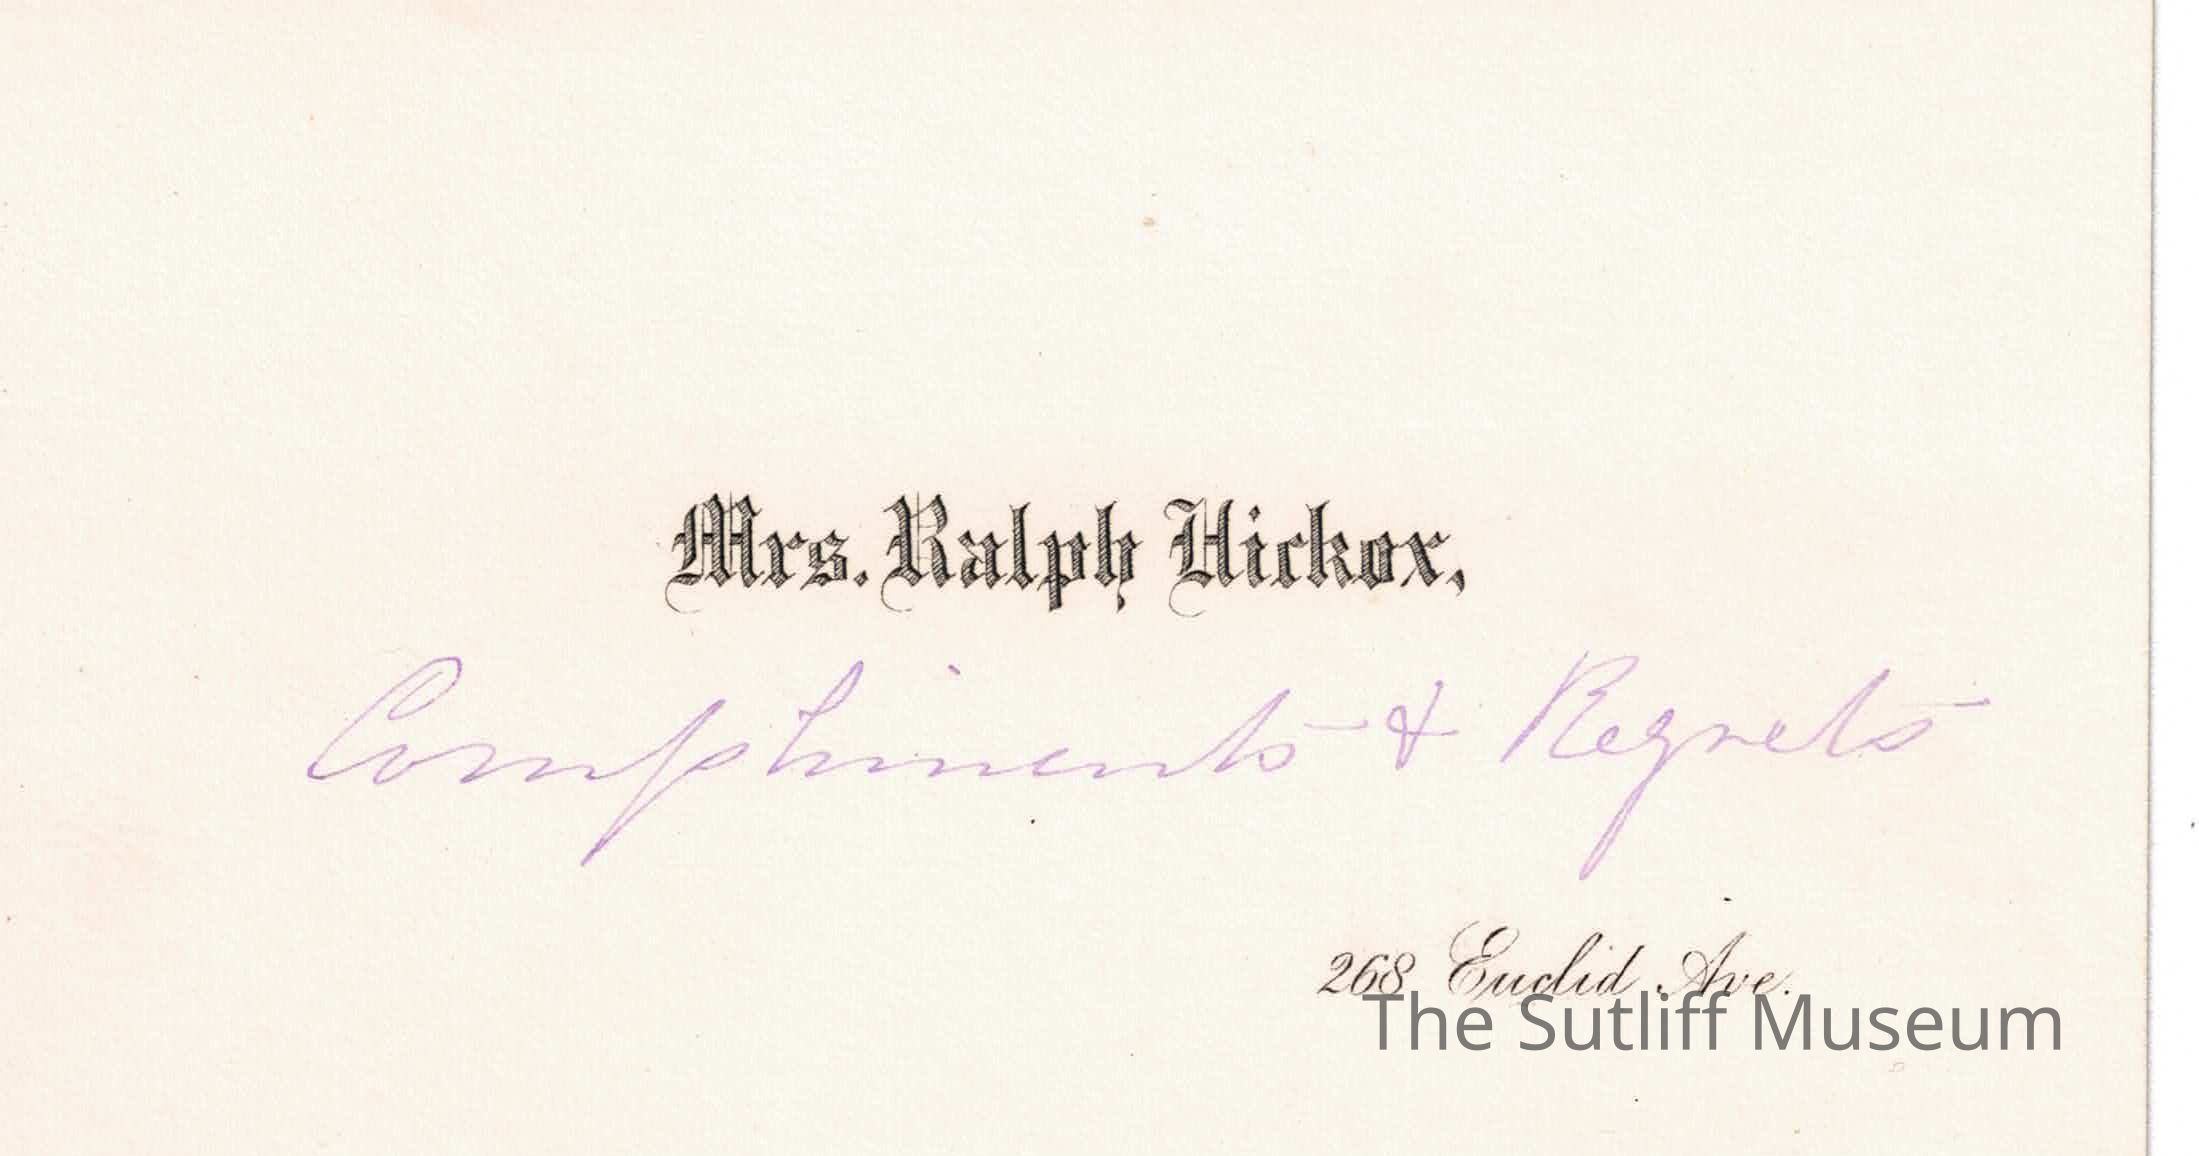 Mrs. Ralph Hickox,
Compliments & Regrets
268 Euclid Ave.
The Sutliff Museum